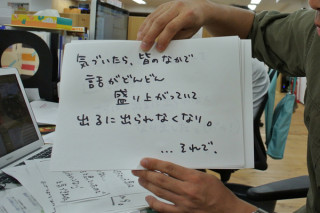 気づいたら、皆のなかで
話がどんどん
盛り上がっていて
出るに出られなくなり。
…それで、